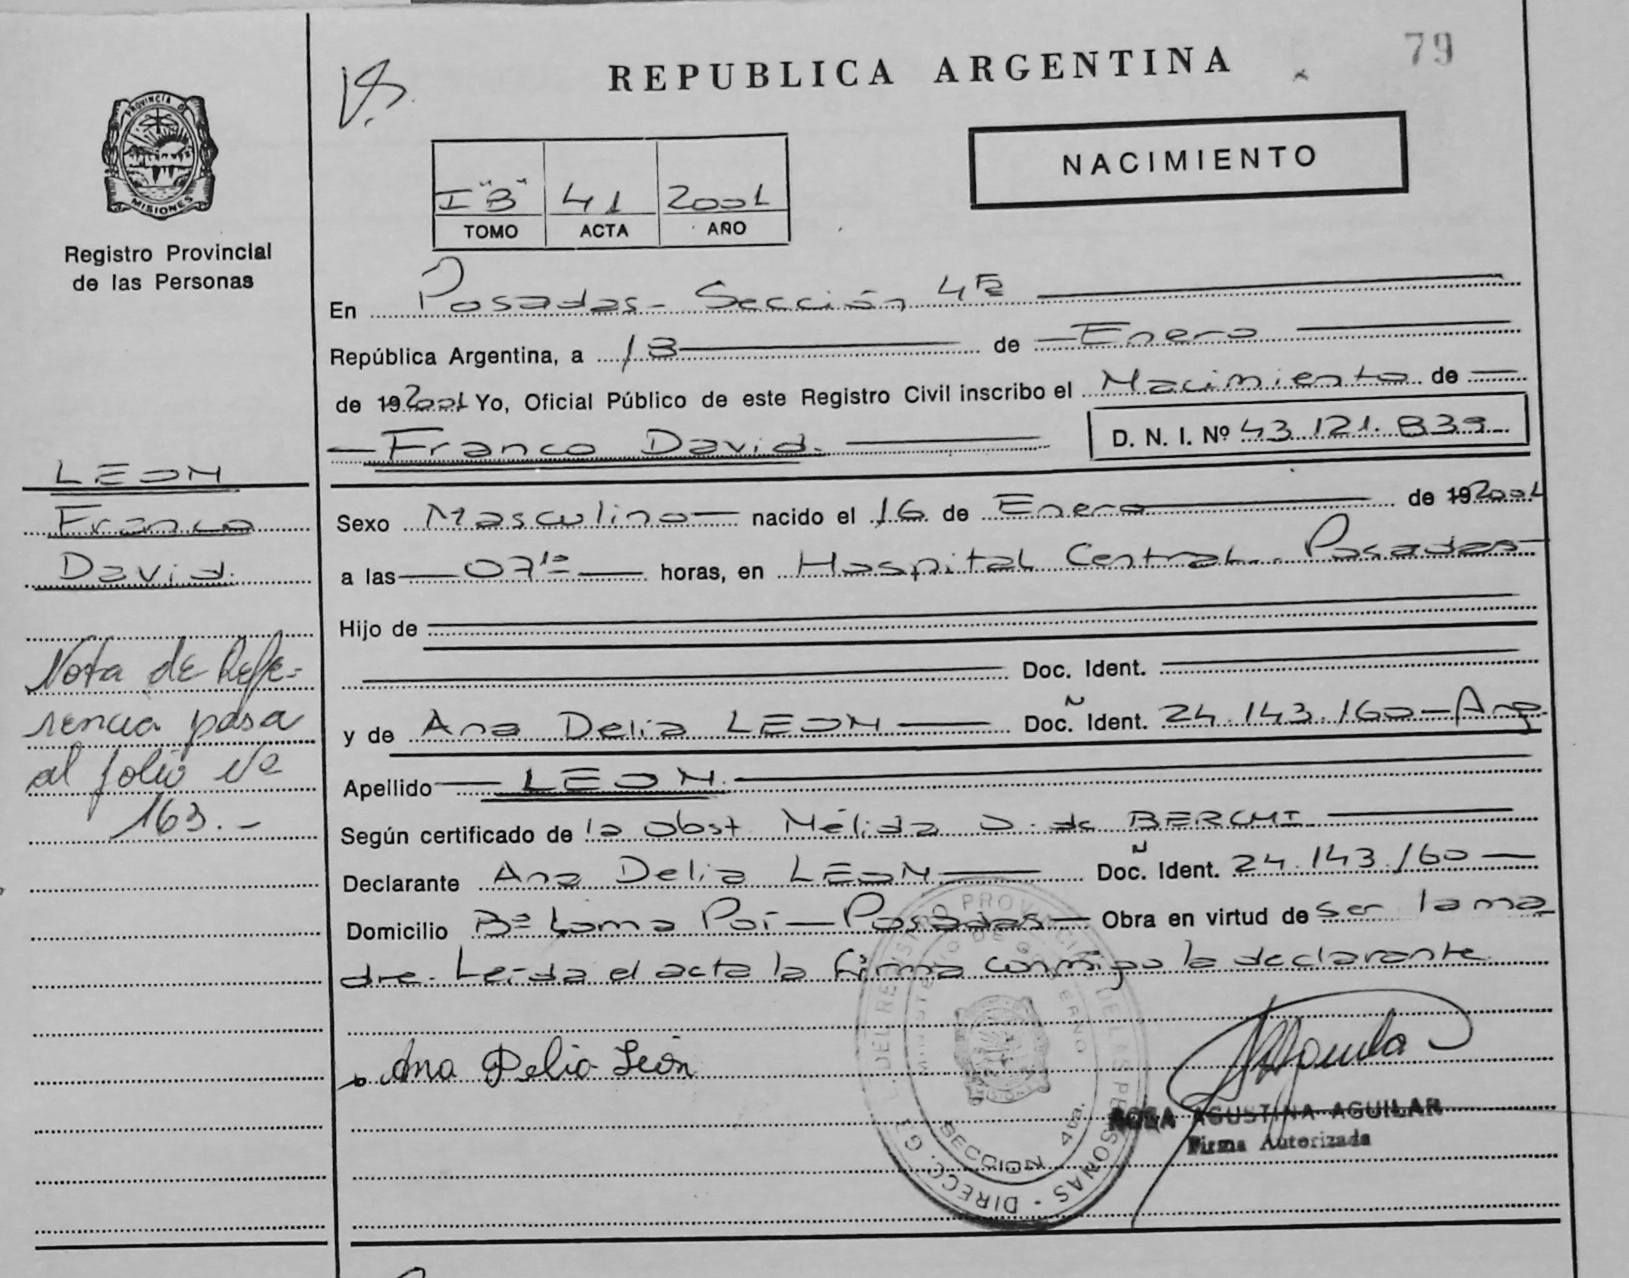 79
REPUBLICA ARGENTINA
NACIMIENTO
PROVINCIA DE
MISIONES
Registro Provincial
de las Personas
I "B" 41 2001
TOMO ACTA AÑO
En Posadas - Sección 4ta
República Argentina, a 18 de Enero
de 192001 Yo, Oficial Público de este Registro Civil inscribo el Nacimiento de
Franco David. D. N. I. Nº 43.121.839
LEON
Franco
David.
Sexo Masculino nacido el 16 de Enero de 192001
a las 07 horas, en Hospital Central - Posadas
Hijo de
Doc. Ident.
y de Ana Delia LEON Doc. Ident. 24.143.160 - Arg.
Apellido LEON.
Según certificado de la Obst Nélida O. de
Declarante Ana Delia LEON Doc. Ident. 24.143.160
Domicilio Bº Loma Poí - Posadas Obra en virtud de ser la ma
dre. Leida el acta la firma conmigo la declarante
Nota de Refe-
rencia pasa
al folio Nº
163.-
Ana Delia León
ROSA AGUSTINA AGUILAR
Firma Autorizada
DIRECC. G. DEL REGISTRO PROVINCIAL DE LAS PERSONAS
MINISTERIO DE GOBIERNO
SECCION 4ta.